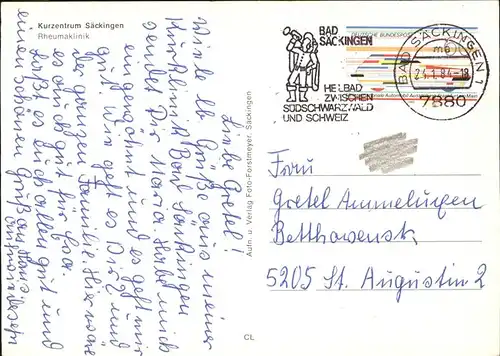 Kurzentrum Säckingen
Rheumaklinik
Liebe Gretel!
Viele lb Grüße aus meiner
Kurklinik Bad Säckingen
sendet Dir Maria. Habe mich
eingewöhnt und es geht mir
gut. Wie geht es Dir und
der ganzen Familie. Hier wäre
es auch gut für
laßt es euch allen gut und
einen schönen Gruß an Hans
Aufn. u. Verlag Foto-Forstmeyer, Säckingen
CL
BAD
SÄCKINGEN
HEILBAD
ZWISCHEN
SÜDSCHWARZWALD
UND SCHWEIZ
DEUTSCHE BUNDESPOST
BAD SÄCKINGEN 1
mb
24.1.84-18
7880
Frau
Gretel Ammelungen
Betthovenstr.
5205 St. Augustin 2